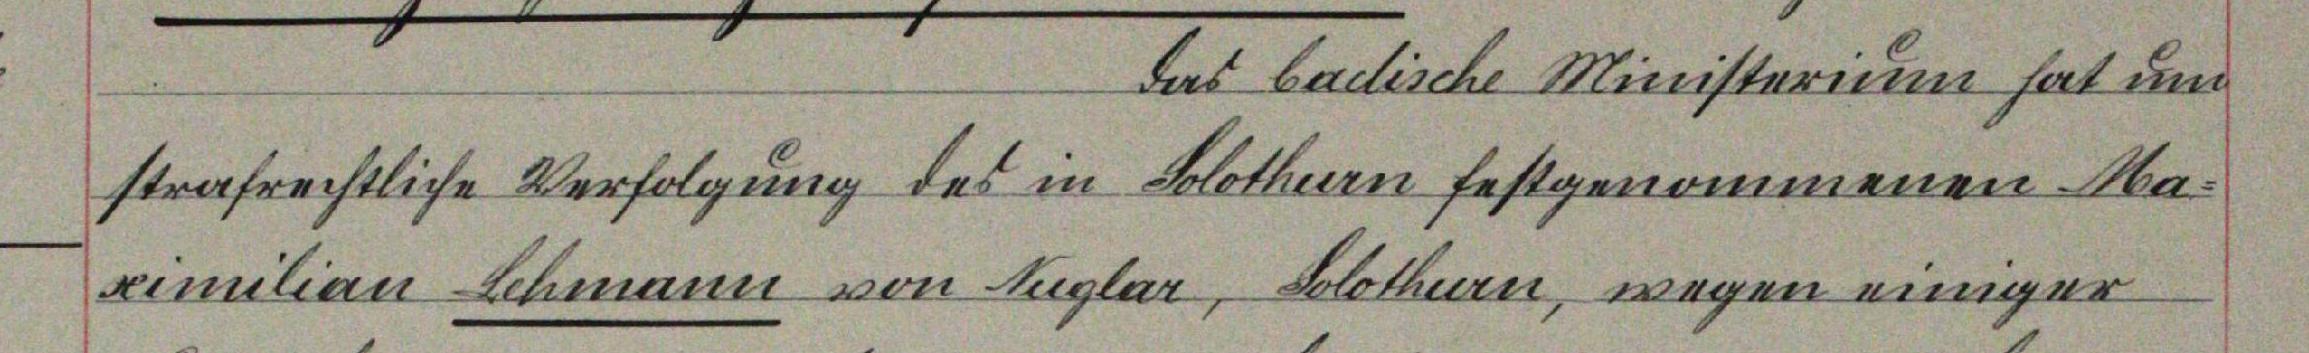 Das badische Ministerium hat um
strafrechtliche Verfolgung des in Solothurn festgenommenen Ma=
ximilian Lehmann von Nuglar, Solothurn, wegen einiger